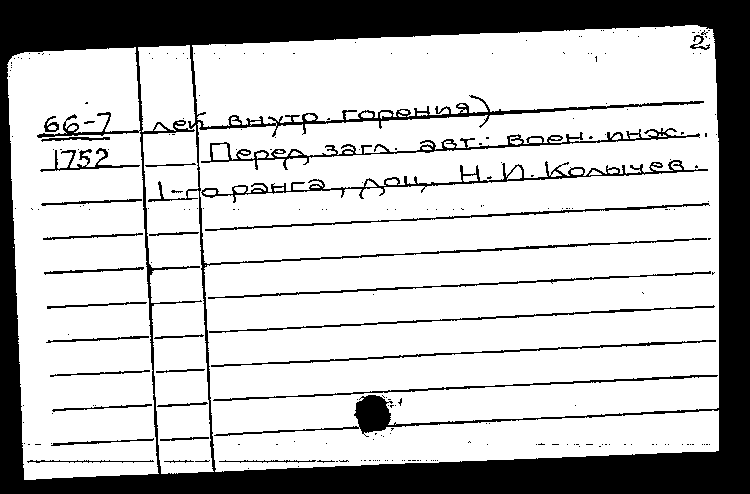 2
66-7 лей внутр. горения).
1752 Перед загл. авт.: воен. инж.
1-го ранга, доц. Н.И. Колычев.